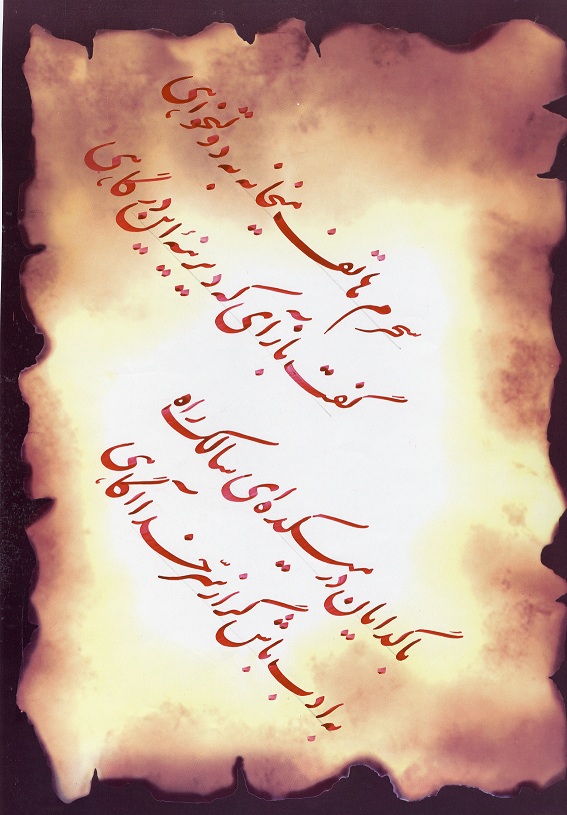 سحرم هاتف میخانه به دولتخواهی
گفت بازآی که دیرینهٔ این درگاهی
با گدایان در میکده ای سالک راه
به ادب باش گر از سرّ خدا آگاهی